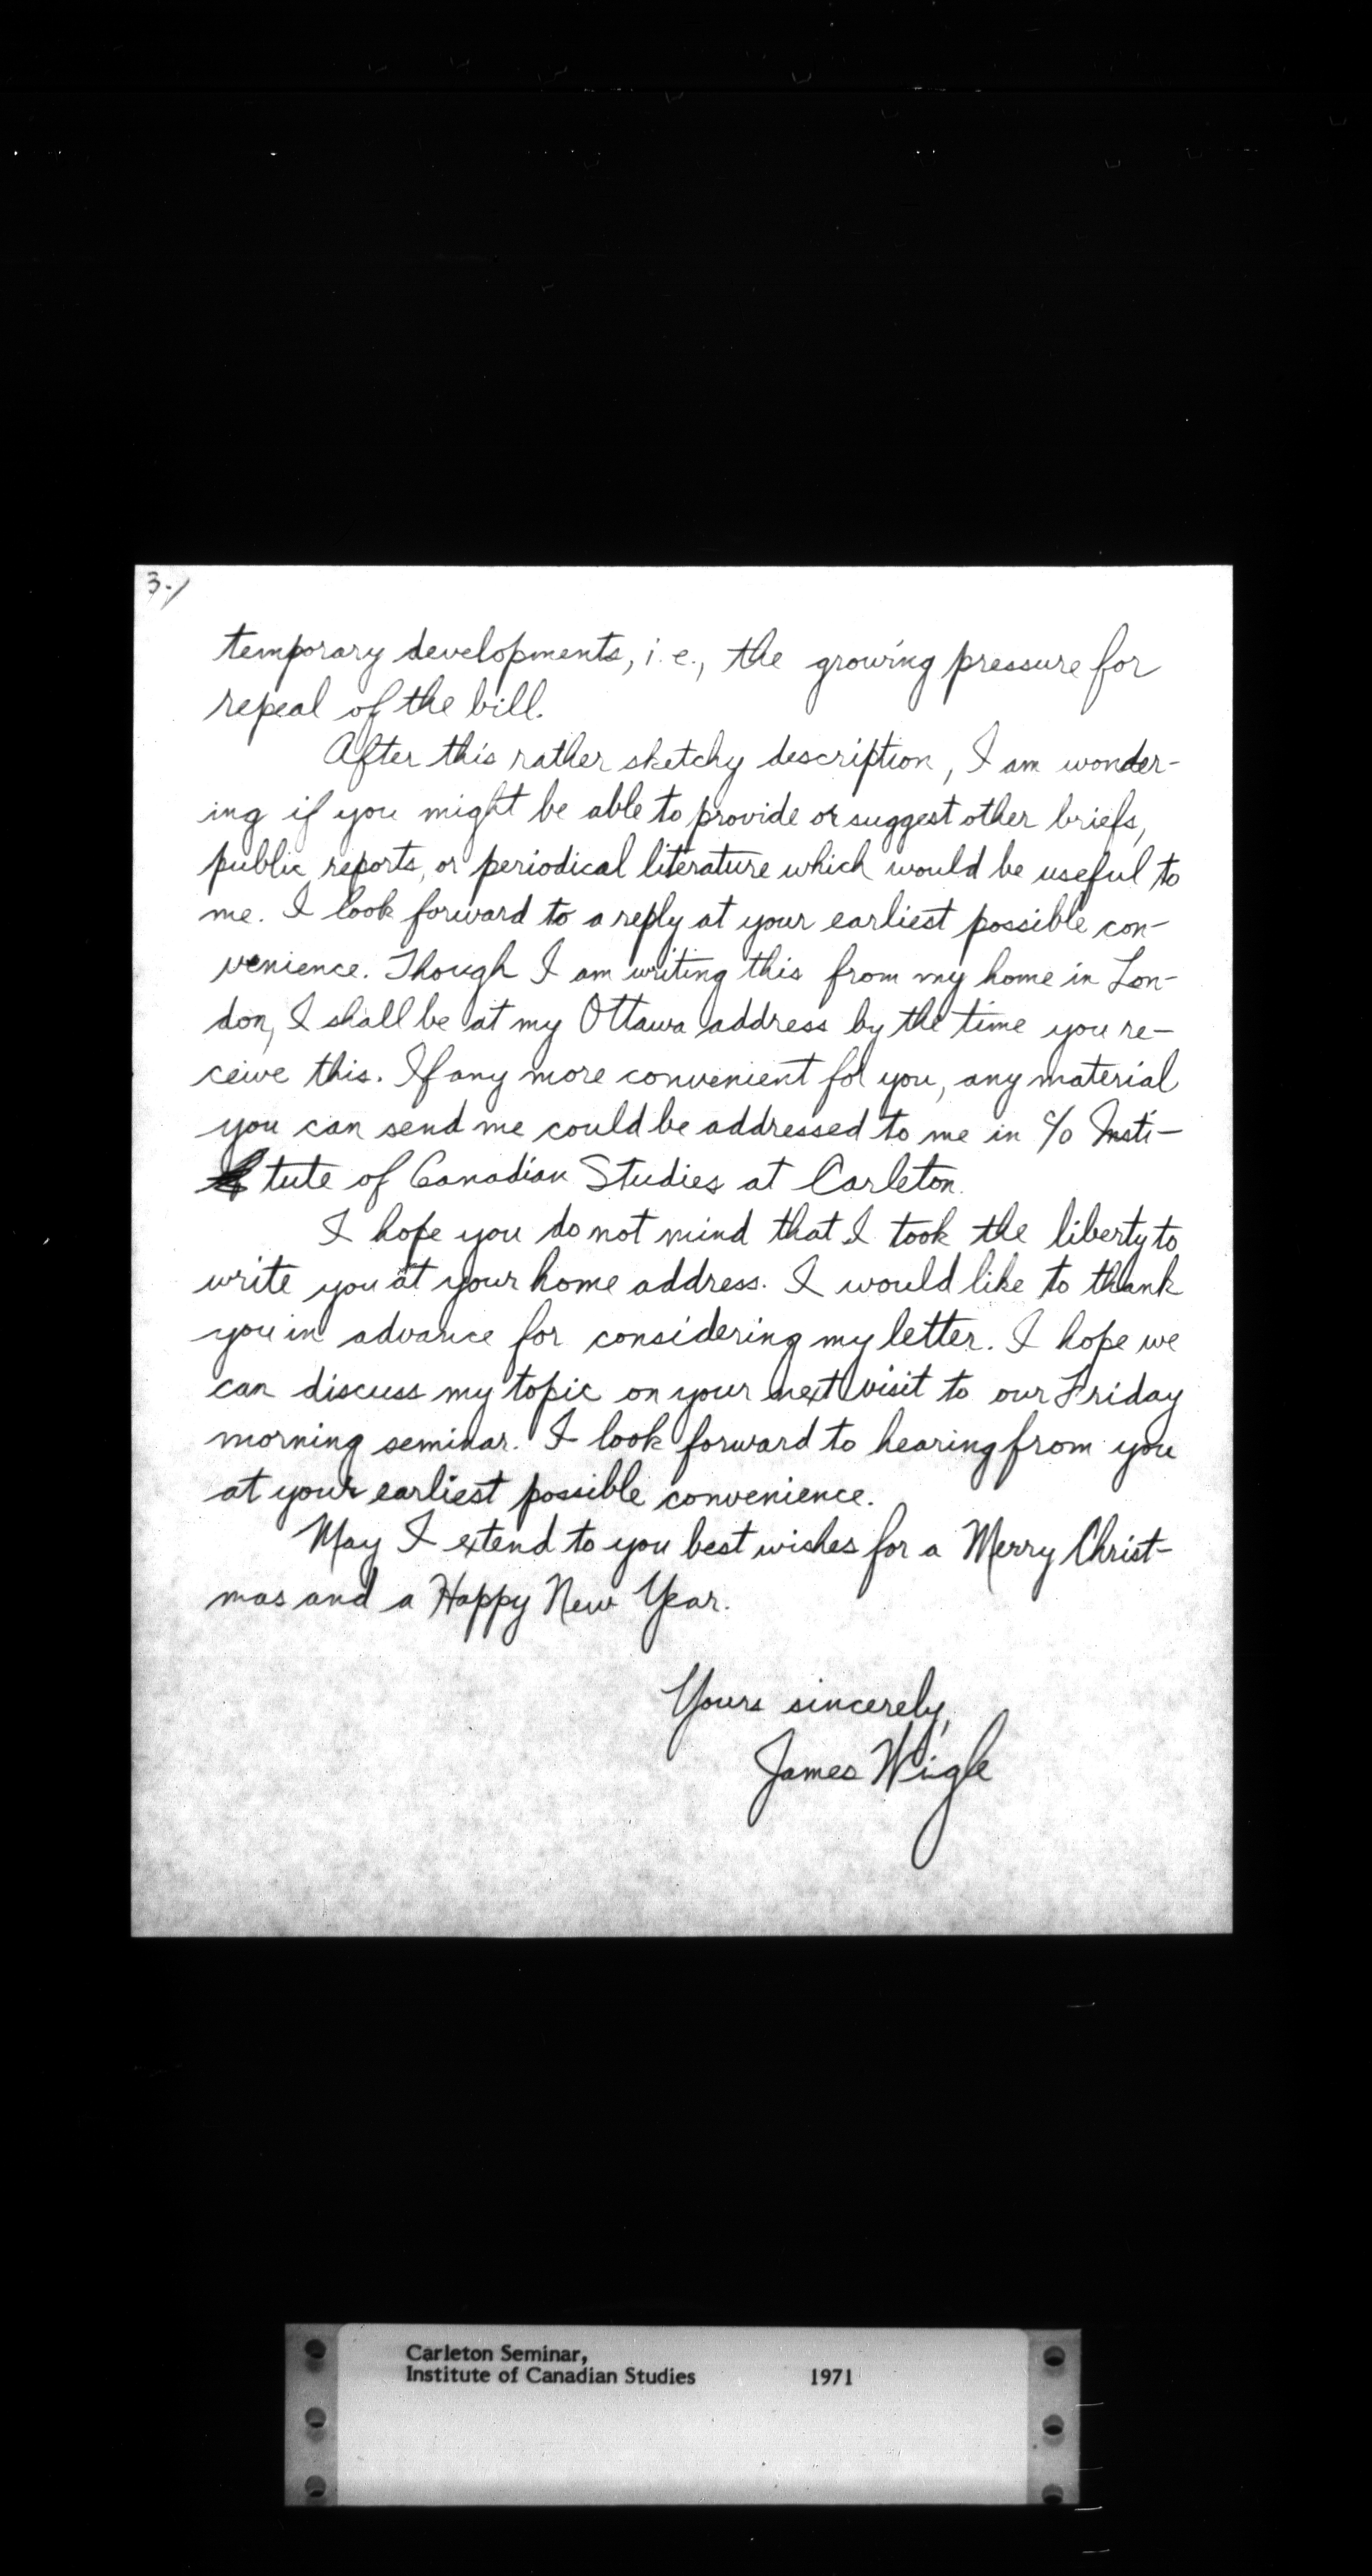 3-/
temporary developments, i.e., the growing pressure for
repeal of the bill.
After this rather sketchy description, I am wonder-
ing if you might be able to provide or suggest other briefs,
public reports, or periodical literature which would be useful to
me. I look forward to a reply at your earliest possible con-
venience. Though I am writing this from my home in Lon-
don, I shall be at my Ottawa address by the time you re-
ceive this. If any more convenient for you, any material
you can send me could be addressed to me in c/o Insti-
tute of Canadian Studies at Carleton.
I hope you do not mind that I took the liberty to
write you at your home address. I would like to thank
you in advance for considering my letter. I hope we
can discuss my topic on your next visit to our Friday
morning seminar. I look forward to hearing from you
at your earliest possible convenience.
May I extend to you best wishes for a Merry Christ-
mas and a Happy New Year.
Yours sincerely,
James Wigle
Carleton Seminar,
Institute of Canadian Studies 1971